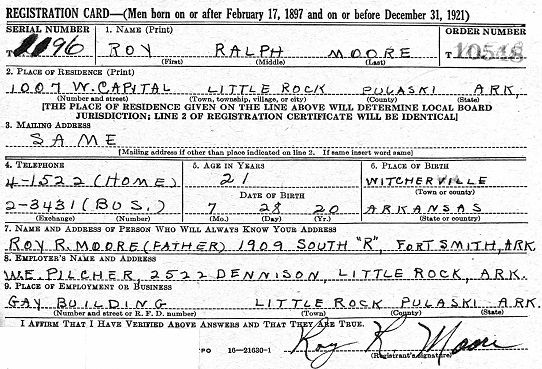 REGISTRATION CARD—(Men born on or after February 17, 1897 and on or before December 31, 1921)
SERIAL NUMBER 1. NAME (Print) ORDER NUMBER
T 1096 ROY RALPH MOORE T 10548
(First) (Middle) (Last)
2. PLACE OF RESIDENCE (Print)
1007 W. CAPITAL LITTLE ROCK PULASKI ARK.
(Number and street) (Town, township, village, or city) (County) (State)
[THE PLACE OF RESIDENCE GIVEN ON THE LINE ABOVE WILL DETERMINE LOCAL BOARD
JURISDICTION; LINE 2 OF REGISTRATION CERTIFICATE WILL BE IDENTICAL]
3. MAILING ADDRESS
SAME
[Mailing address if other than place indicated on line 2. If same insert word same]
4. TELEPHONE 5. AGE IN YEARS 6. PLACE OF BIRTH
4-1522 (HOME) 21 WITCHERVILLE
DATE OF BIRTH (Town or county)
2-3431 (BUS.) 7 28 20 ARKANSAS
(Exchange) (Number) (Mo.) (Day) (Yr.) (State or country)
7. NAME AND ADDRESS OF PERSON WHO WILL ALWAYS KNOW YOUR ADDRESS
ROY R. MOORE (FATHER) 1909 SOUTH "R", FORT SMITH, ARK
8. EMPLOYER'S NAME AND ADDRESS
WE PILCHER, 2522 DENNISON, LITTLE ROCK, ARK.
9. PLACE OF EMPLOYMENT OR BUSINESS
GAY BUILDING LITTLE ROCK PULASKI ARK.
(Number and street or R. F. D. number) (Town) (County) (State)
I AFFIRM THAT I HAVE VERIFIED ABOVE ANSWERS AND THAT THEY ARE TRUE.
Roy R. Moore
PO 16—21630-1 (Registrant's signature)